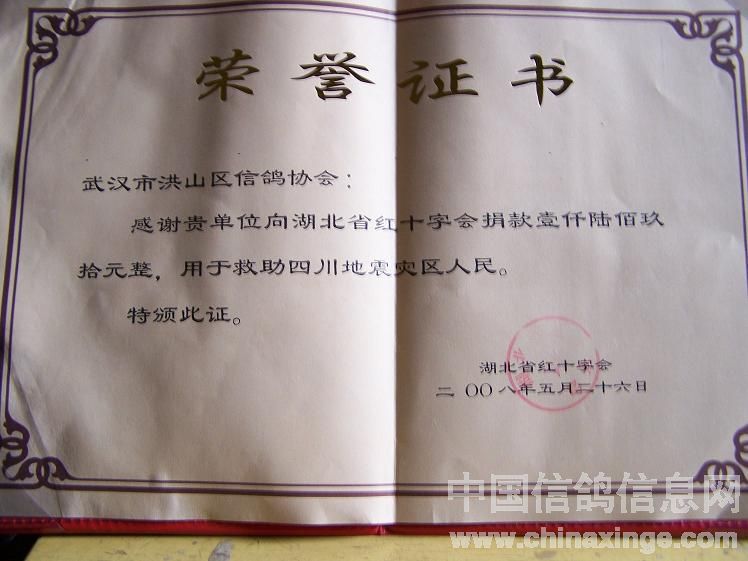 荣誉证书
武汉市洪山区信鸽协会：
感谢贵单位向湖北省红十字会捐款壹仟陆佰玖
拾元整，用于救助四川地震灾区人民。
特颁此证。
湖北省红十字会
二〇〇八年五月二十六日
中国信鸽信息网
www.chinaxinge.com